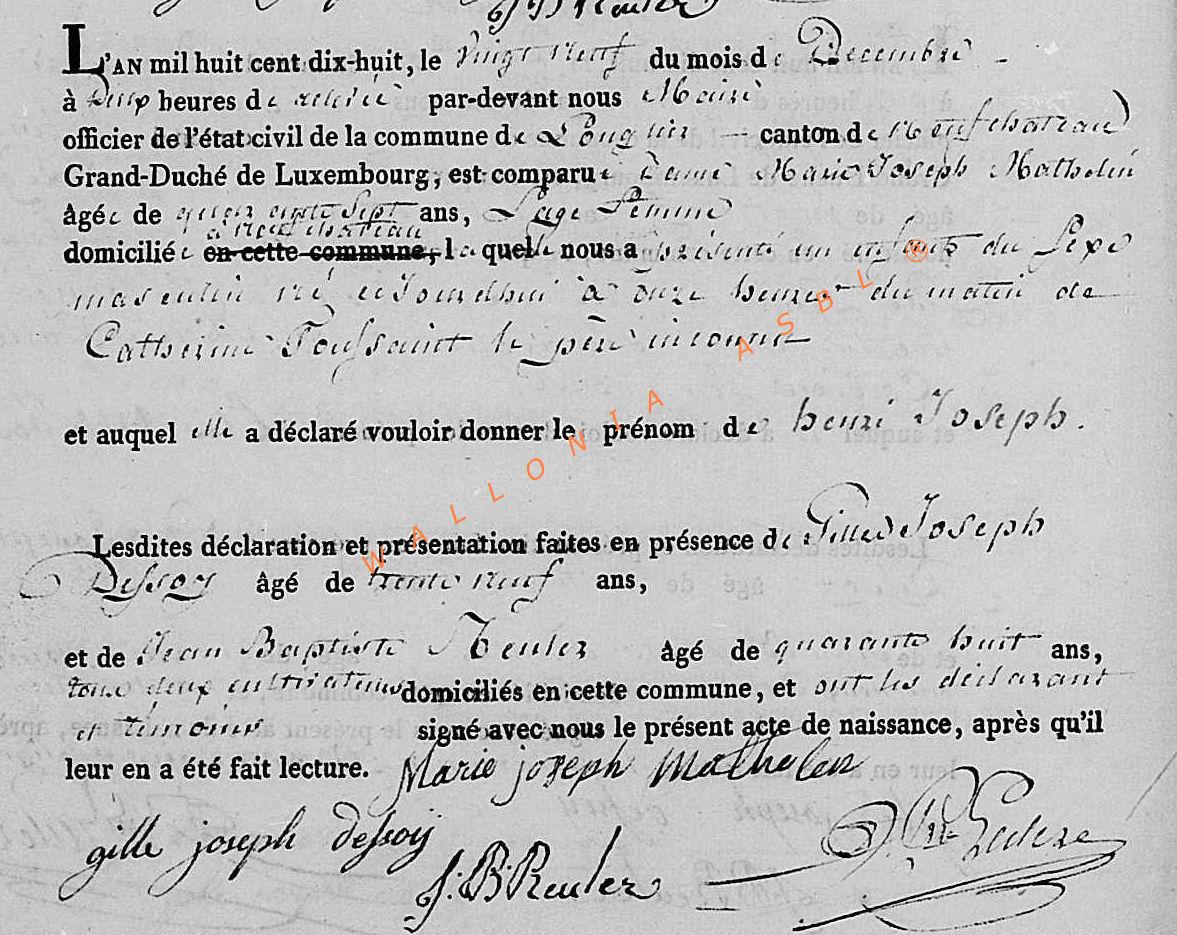 L'AN mil huit cent dix-huit, le vingt neuf du mois de Decembre
à deux heures de relevée par-devant nous Maire
officier de l'état civil de la commune de Longlier canton de Neufchateau
Grand-Duché de Luxembourg, est comparue Dame Marie Joseph Mathelin
âgée de quarante sept ans, Sage femme
à neufchateau
domiciliée en cette commune, laquelle nous a présenté un enfant du Sexe
masculin né ejourdhui à onze heures du matin de
Catherine Toussaint le père inconnu
et auquel elle a déclaré vouloir donner le prénom de henri Joseph.
Lesdites déclaration et présentation faites en présence de Gille Joseph
Dessoy âgé de trente neuf ans,
et de Jean Baptiste Reuler âgé de quarante huit ans,
tous deux cultivateurs domiciliés en cette commune, et ont les déclarant
et témoins signé avec nous le présent acte de naissance, après qu'il
leur en a été fait lecture. Marie joseph Mathelin
gille joseph dessoy
J:B:Reuler
WALLONIA ASBL ®